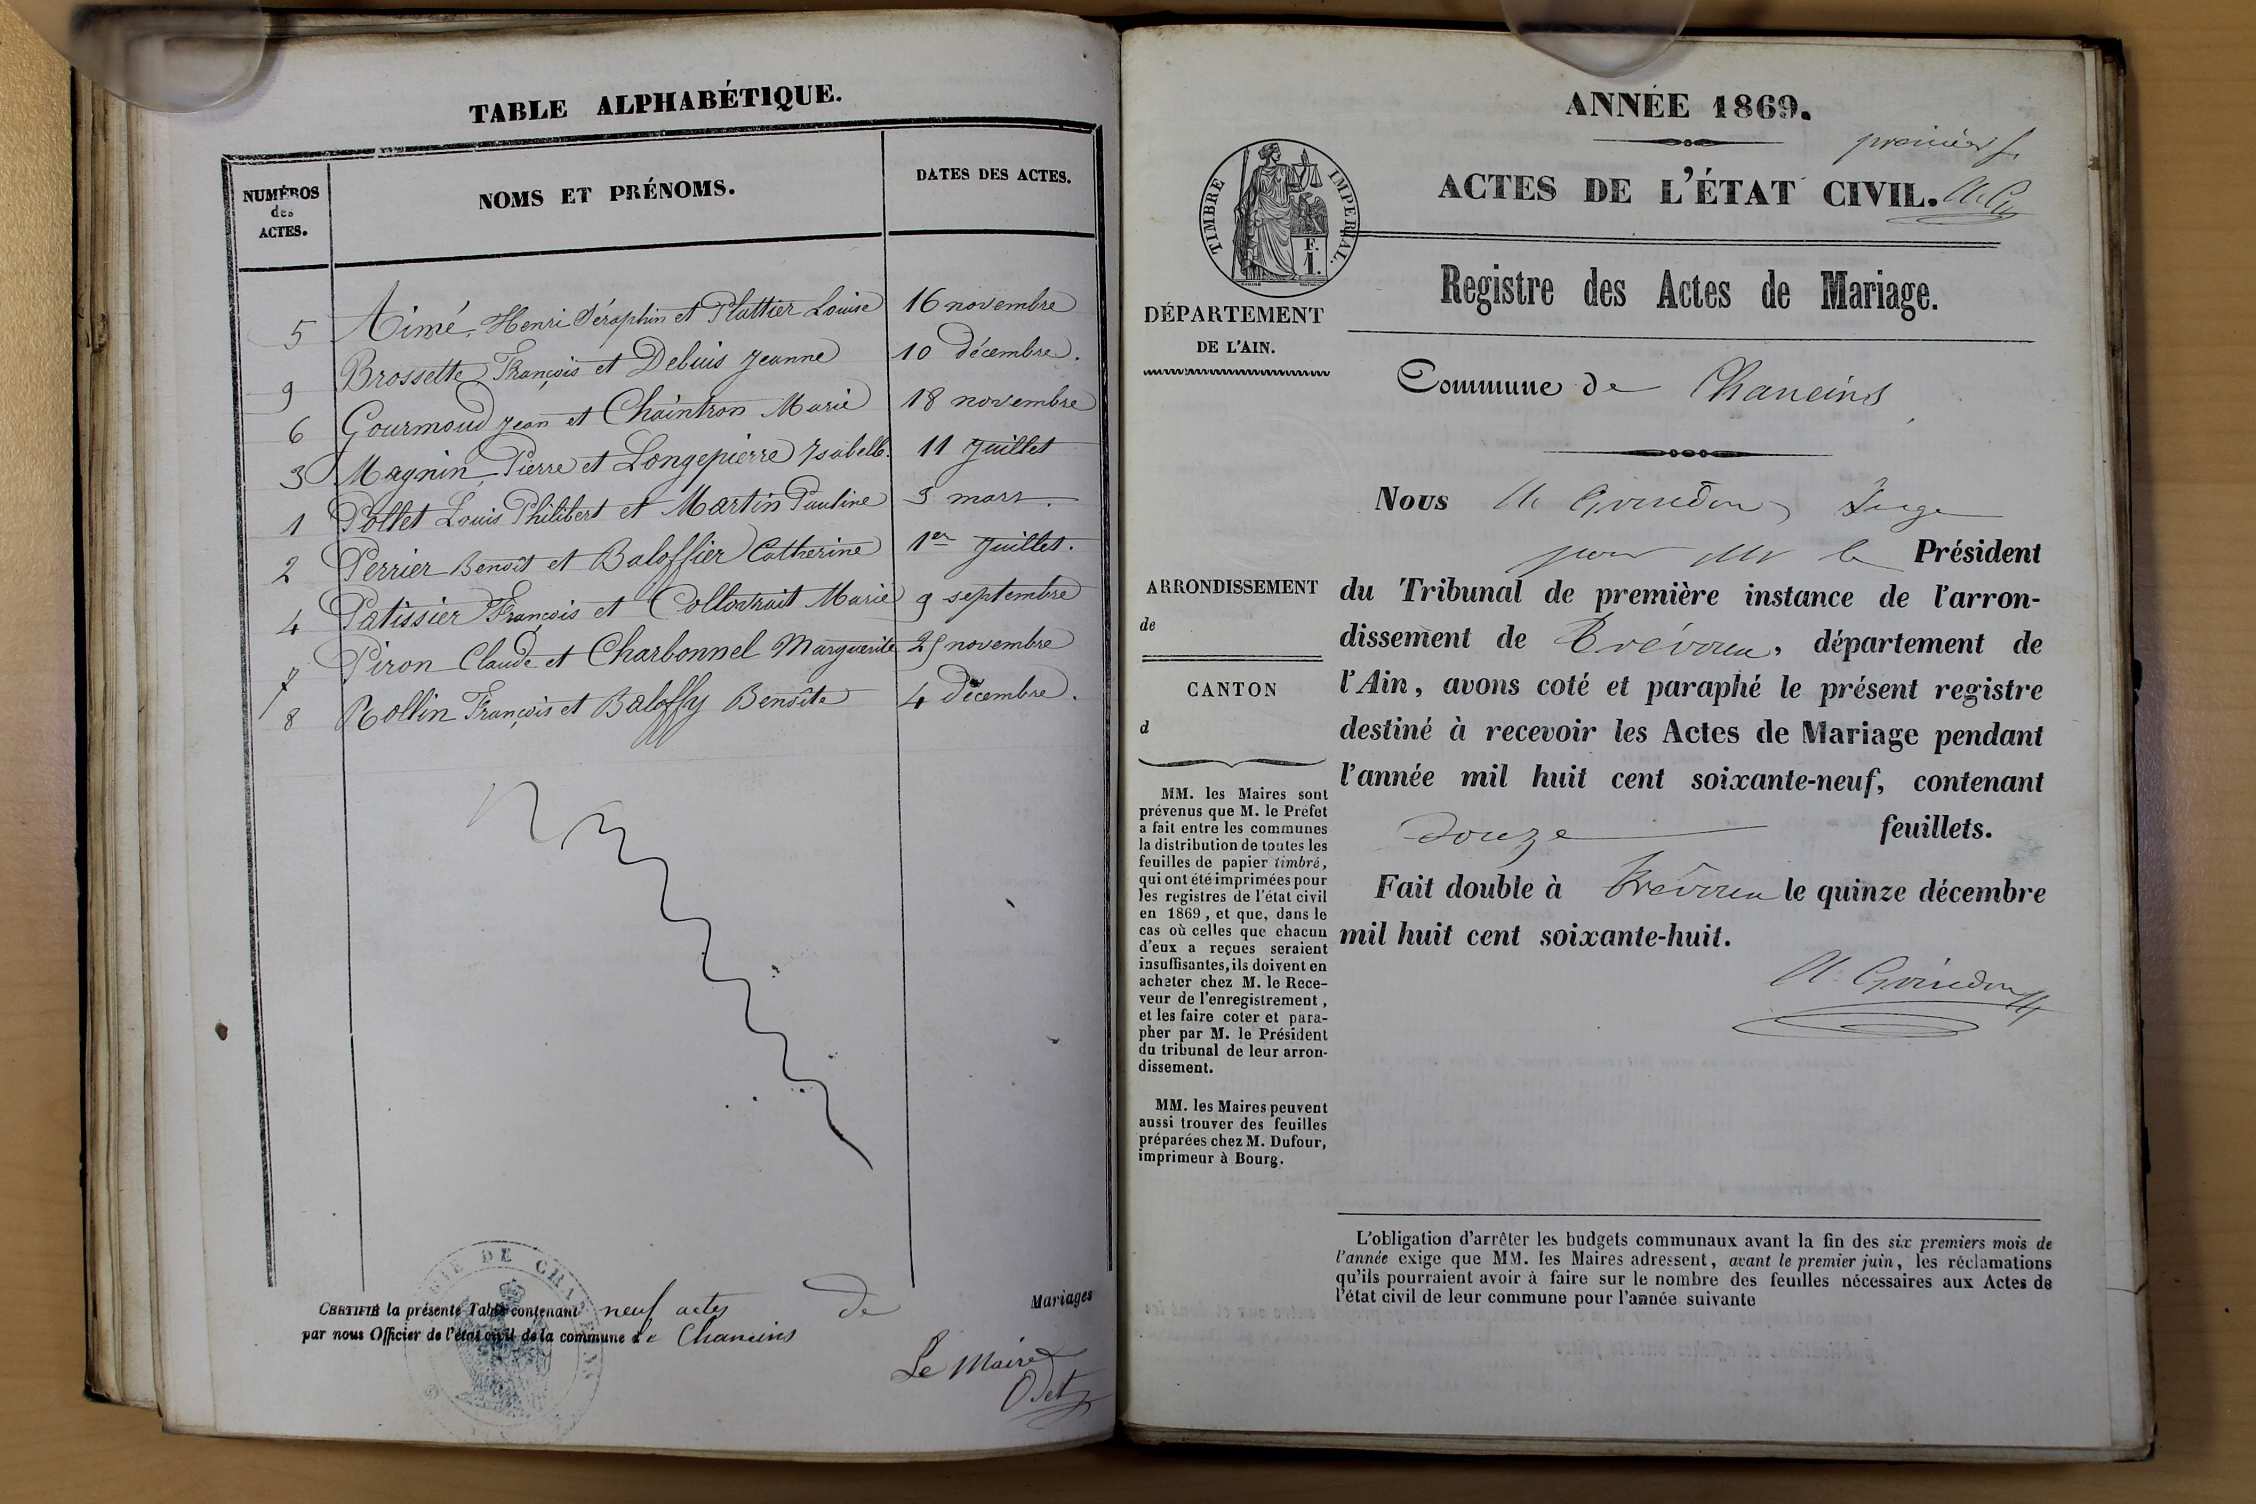 TABLE ALPHABÉTIQUE.
NUMÉROS
des
ACTES.
NOMS ET PRÉNOMS.
DATES DES ACTES.
5 Aimé, Henri Séraphin et Plattier Louise 16 novembre
9 Brossette François et Debuis Jeanne 10 décembre.
6 Gourmoud Jean et Chaintron Marie 18 novembre
3 Magnin Pierre et Longepierre Ysabelle. 11 Juillet
1 Pollet Louis Philibert et Martin Pauline 3 mars.
2 Perrier Benoit et Baloffier Catherine 1er Juillet.
4 Patissier François et Collovrait Marie 9 septembre
7 Piron Claude et Charbonnel Marguerite 25 novembre
8 Rollin François et Baloffy Benoîte 4 décembre.
CERTIFIÉ la présente Table contenant neuf actes de Mariages
par nous Officier de l'état civil de la commune de Chaneins
Le Maire
Odet
ANNÉE 1869.
premier f.
ACTES DE L'ÉTAT CIVIL.
TIMBRE IMPERIAL.
F.
1.
Registre des Actes de Mariage.
DÉPARTEMENT
DE L'AIN.
Commune de Chaneins
ARRONDISSEMENT
de
CANTON
d
MM. les Maires sont
prévenus que M. le Préfet
a fait entre les communes
la distribution de toutes les
feuilles de papier timbré,
qui ont été imprimées pour
les registres de l'état civil
en 1869, et que, dans le
cas où celles que chacun
d'eux a reçues seraient
insuffisantes, ils doivent en
acheter chez M. le Rece-
veur de l'enregistrement,
et les faire coter et para-
pher par M. le Président
du tribunal de leur arron-
dissement.
MM. les Maires peuvent
aussi trouver des feuilles
préparées chez M. Dufour,
imprimeur à Bourg.
Nous Juge
pour Mr le Président
du Tribunal de première instance de l'arron-
dissement de Trévoux, département de
l'Ain, avons coté et paraphé le présent registre
destiné à recevoir les Actes de Mariage pendant
l'année mil huit cent soixante-neuf, contenant
douze feuillets.
Fait double à Trévoux le quinze décembre
mil huit cent soixante-huit.
L'obligation d'arrêter les budgets communaux avant la fin des six premiers mois de
l'année exige que MM. les Maires adressent, avant le premier juin, les réclamations
qu'ils pourraient avoir à faire sur le nombre des feuilles nécessaires aux Actes de
l'état civil de leur commune pour l'année suivante